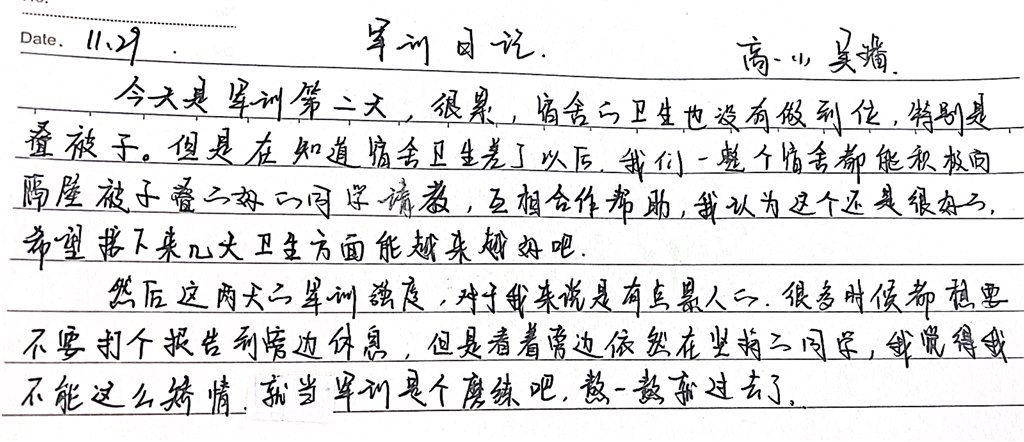 No.
Date. 11.29 . 军训日记. 高一 吴
今天是军训第二天,很累,宿舍的卫生也没有做到位,特别是
叠被子。但是在知道宿舍卫生差了以后,我们一整个宿舍都能积极向
隔壁被子叠的好的同学请教,互相合作帮助,我认为这个还是很好的,
希望接下来几天卫生方面能越来越好吧.
然后这两天的军训强度,对于我来说是有点累人的.很多时候都想要
不要打个报告到旁边休息,但是看着旁边依然在坚持的同学,我觉得我
不能这么矫情.就当军训是个磨练吧,熬一熬就过去了.